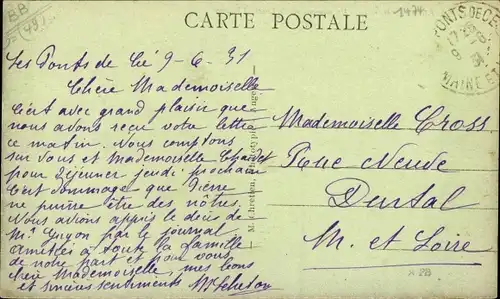 CARTE POSTALE
Les Ponts de Cé 9-6-31
Chère Mademoiselle
C'est avec grand plaisir que
nous avons reçu votre lettre
ce matin. Nous comptons
sur vous et Mademoiselle
pour déjeuner jeudi prochain
C'est dommage que Pierre
ne puisse être des nôtres.
Nous avons appris le décès de
Mr Guyon par le journal
Amitiés à toute la famille
de notre part et pour vous
chère Mademoiselle, mes bons
et sincères sentiments
Mademoiselle Cross
Rue Neuve
Durtal
M. et Loire
PONTS DE CÉ
MAINE E